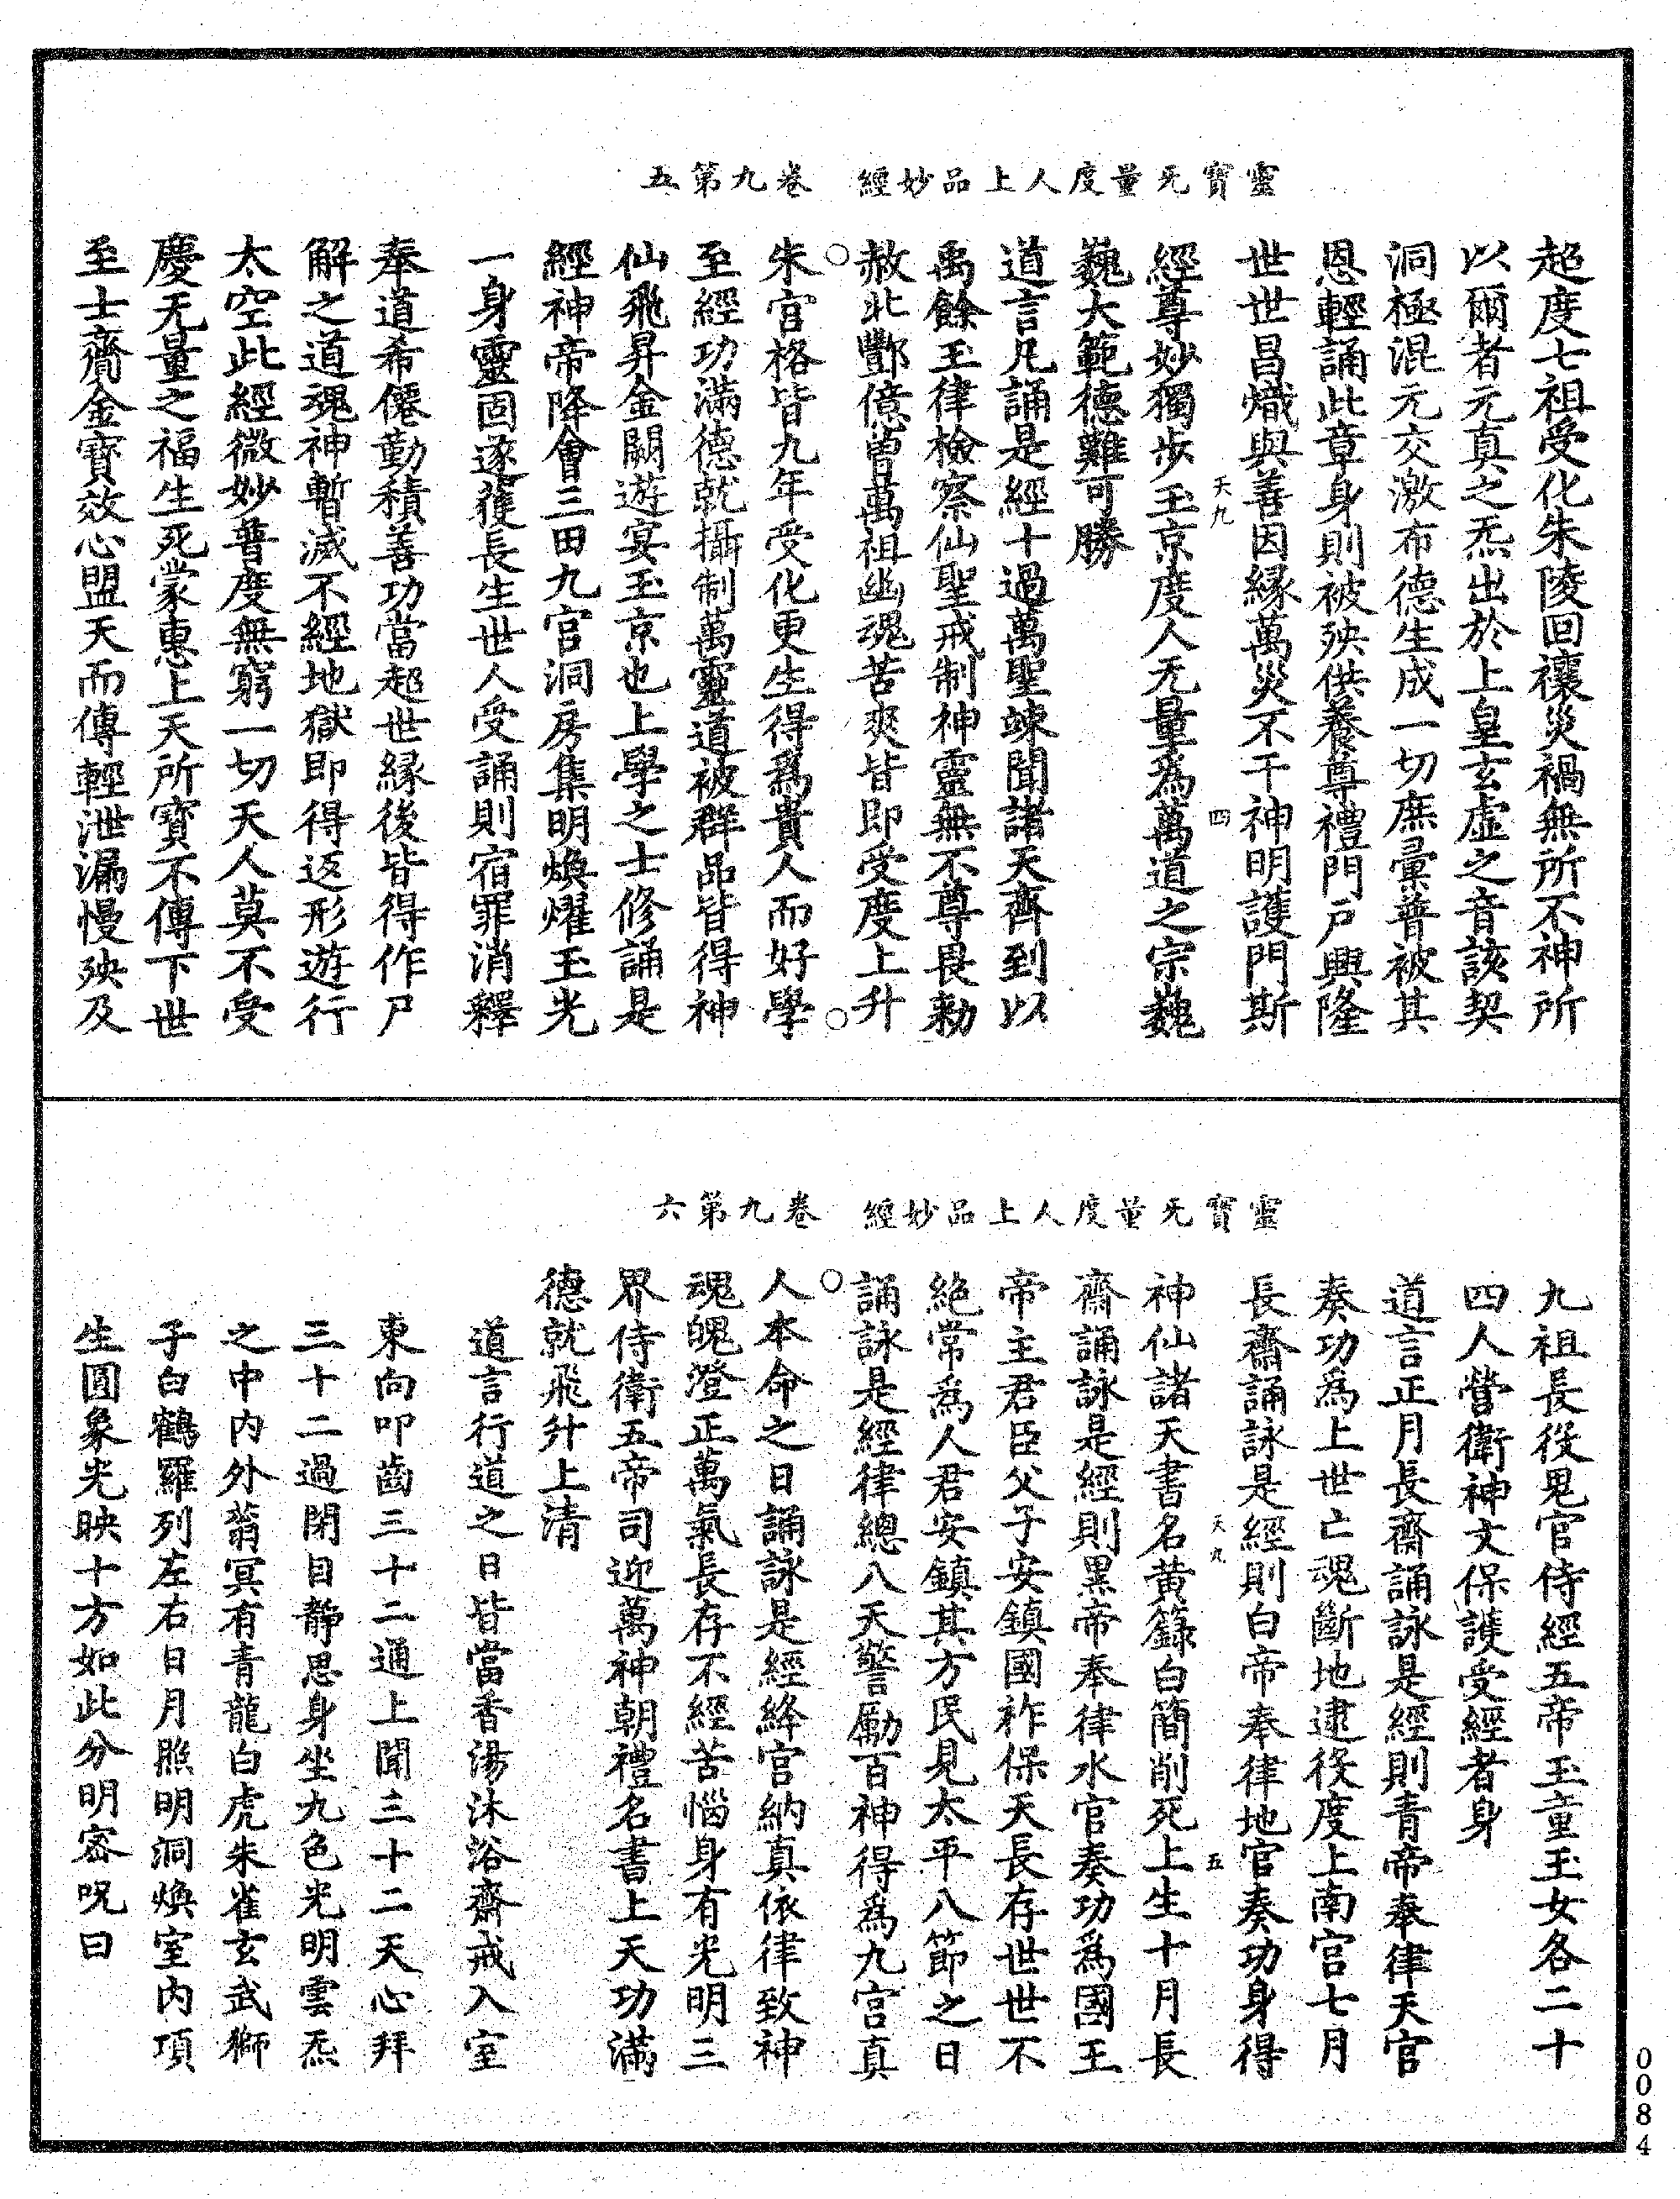 靈寶无量度人上品妙經　卷九第五
超度七祖受化朱陵回禳災禍無所不神所
以爾者元真之炁出於上皇玄虛之音該契
洞極混元交激布德生成一切庶彙普被其
恩輕誦此章身則被殃供養尊禮門戶興隆
世世昌熾與善因緣萬災不干神明護門斯
天九　四
經尊妙獨步玉京度人无量為萬道之宗巍
巍大範德難可勝
道言凡誦是經十過萬聖竦聞諸天齊到以
禹餘玉律檢察仙聖戒制神靈無不尊畏勅
赦北酆億曾萬祖幽魂苦爽皆即受度上升
朱官格皆九年受化更生得為貴人而好學
至經功滿德就攝制萬靈道被群品皆得神
仙飛昇金闕遊宴玉京也上學之士修誦是
經神帝降會三田九官洞房集明煥燿玉光
一身靈固遂獲長生世人受誦則宿罪消釋
奉道希僊勤積善功當超世緣後皆得作尸
解之道魂神暫滅不經地獄即得返形遊行
太空此經微妙普度無窮一切天人莫不受
慶无量之福生死蒙惠上天所寶不傳下世
至士齎金寶效心盟天而傳輕泄漏慢殃及
靈寶无量度人上品妙經　卷九第六
九祖長役鬼官侍經五帝玉童玉女各二十
四人營衛神文保護受經者身
道言正月長齋誦詠是經則青帝奉律天官
奏功為上世亡魂斷地逮役度上南宮七月
長齋誦詠是經則白帝奉律地官奏功身得
天九　五
神仙諸天書名黃籙白簡削死上生十月長
齋誦詠是經則黑帝奉律水官奏功為國王
帝主君臣父子安鎮國祚保天長存世世不
絕常為人君安鎮其方民見太平八節之日
誦詠是經律總八天警勵百神得為九宮真
人本命之日誦詠是經絳宮納真依律致神
魂魄澄正萬氣長存不經苦惱身有光明三
界侍衛五帝司迎萬神朝禮名書上天功滿
德就飛升上清
道言行道之日皆當香湯沐浴齋戒入室
東向叩齒三十二通上聞三十二天心拜
三十二過閉目靜思身坐九色光明雲炁
之中內外蓊冥有青龍白虎朱雀玄武獅
子白鶴羅列左右日月照明洞煥室內項
生圓象光映十方如此分明密呪曰
0084